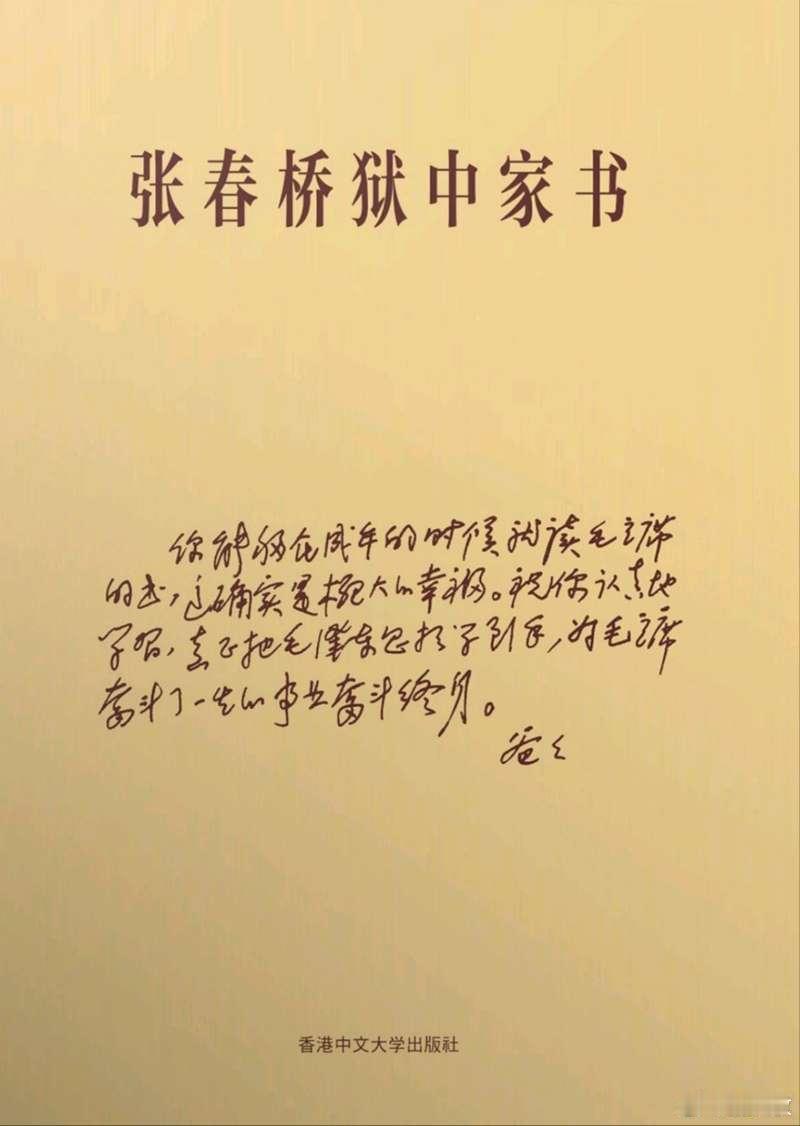 张春桥狱中家书
你能够在成年的时候就读毛主席
的书，这确实是极大的幸福。祝你认真地
学习，真正把毛泽东思想学到手，为毛主席
奋斗了一生的事业奋斗终身。
爸々
香港中文大学出版社